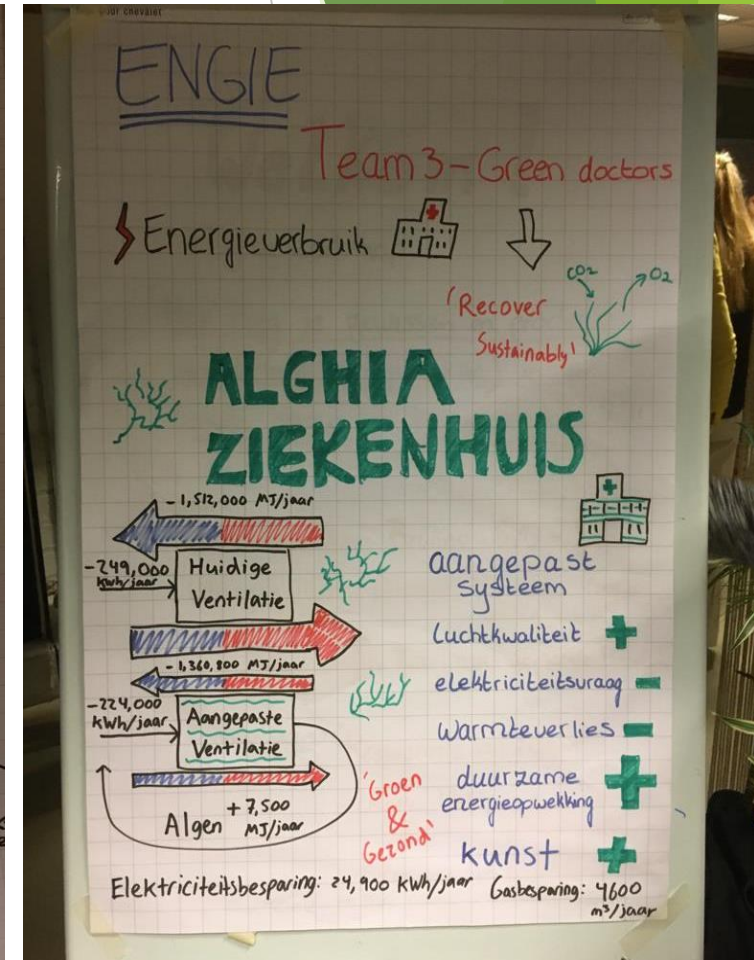 ENGIE
Team 3 - Green doctors
Energieverbruik
CO2
O2
'Recover
Sustainably'
ALGHIA
ZIEKENHUIS
- 1,512,000 MJ/jaar
-249,000
kwh/jaar
Huidige
Ventilatie
- 1,360,800 MJ/jaar
-224,000
kWh/jaar
Aangepaste
Ventilatie
Algen
+ 7,500
MJ/jaar
aangepast
systeem
luchtkwaliteit +
elektriciteitsvraag -
warmteverlies -
duurzame
energieopwekking +
kunst +
'Groen
&
Gezond'
Elektriciteitsbesparing: 24,900 kWh/jaar
Gasbesparing: 4600
m³/jaar